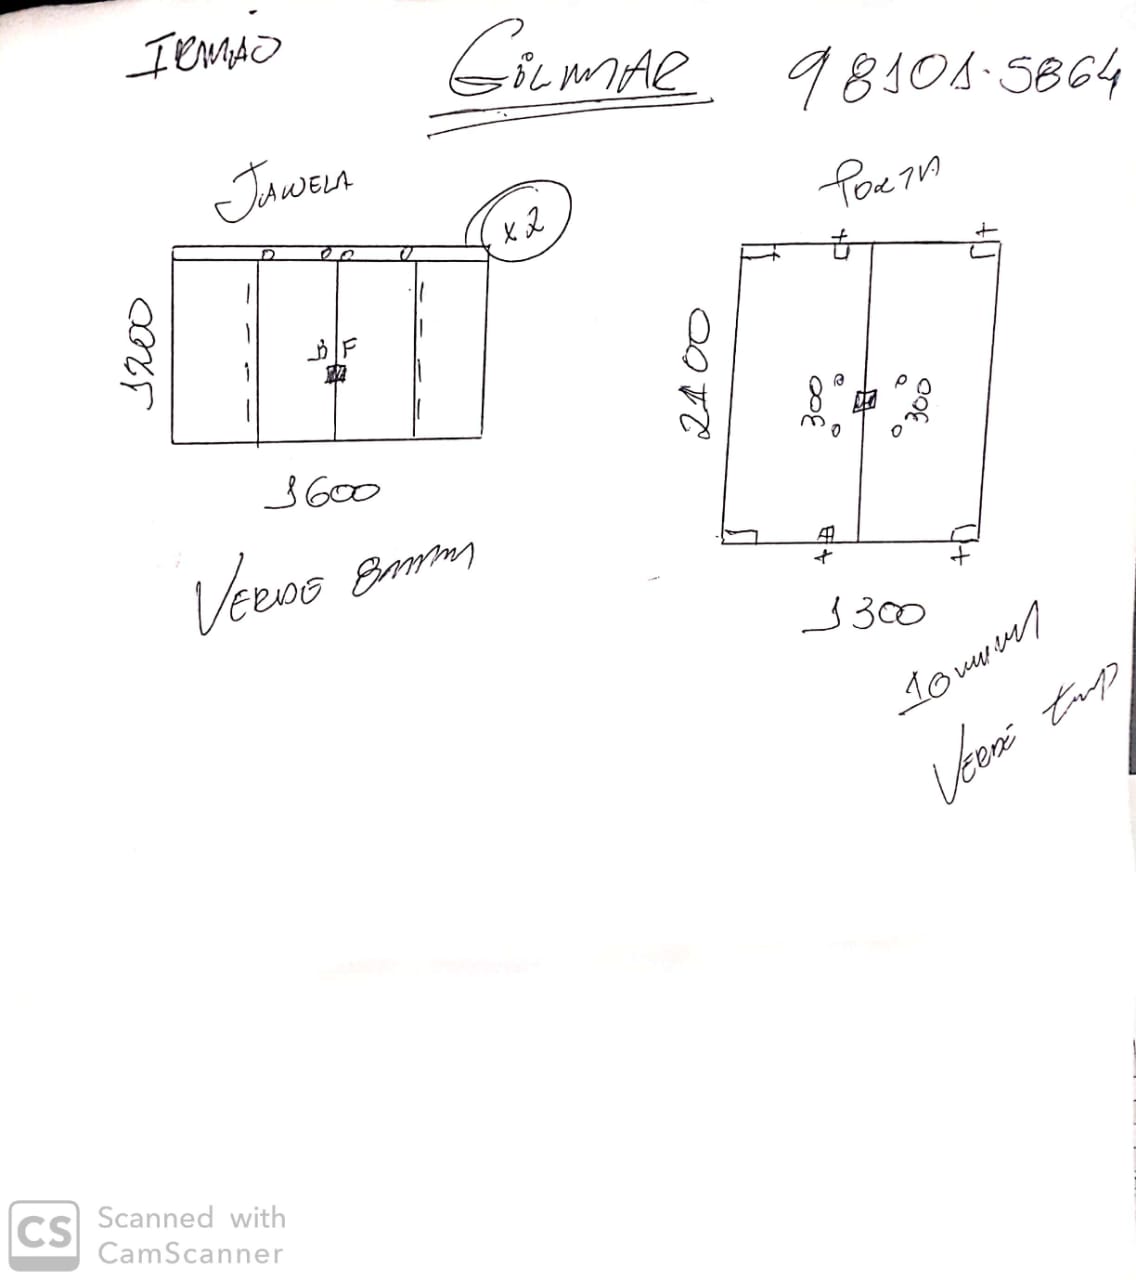 IRMÃO
GILMAR 98101-5864
JANELA
x2
1200
B F
1600
VERDE 8mmm
PORTA
2100
300
300
1300
10mmm
VERDE tmp
Scanned with
CamScanner